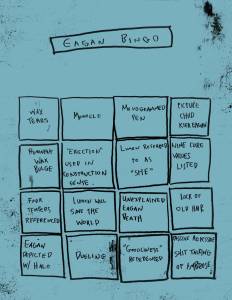 EAGAN BINGO
WAX
TEARS
MONOGRAMMED
PEN
PICTURE
CHILD
KIER EAGAN
WAX
"ERECTION"
USED IN
CONSTRUCTION
SENSE
LUMON REFERRED
TO AS
"SHE"
NINE CORE
VALUES
LISTED
FOUR
TEMPERS
REFERENCED
LUMON WILL
SAVE THE
WORLD
UNEXPLAINED
EAGAN
DEATH
LOCK OF
OLD HAIR
EAGAN
DEPICTED
W/ HALO
DUELING
"GOODLINESS"
REFERENCED
PASSIVE AGGRESSIVE
SHIT TALKING
OF AMBROSE